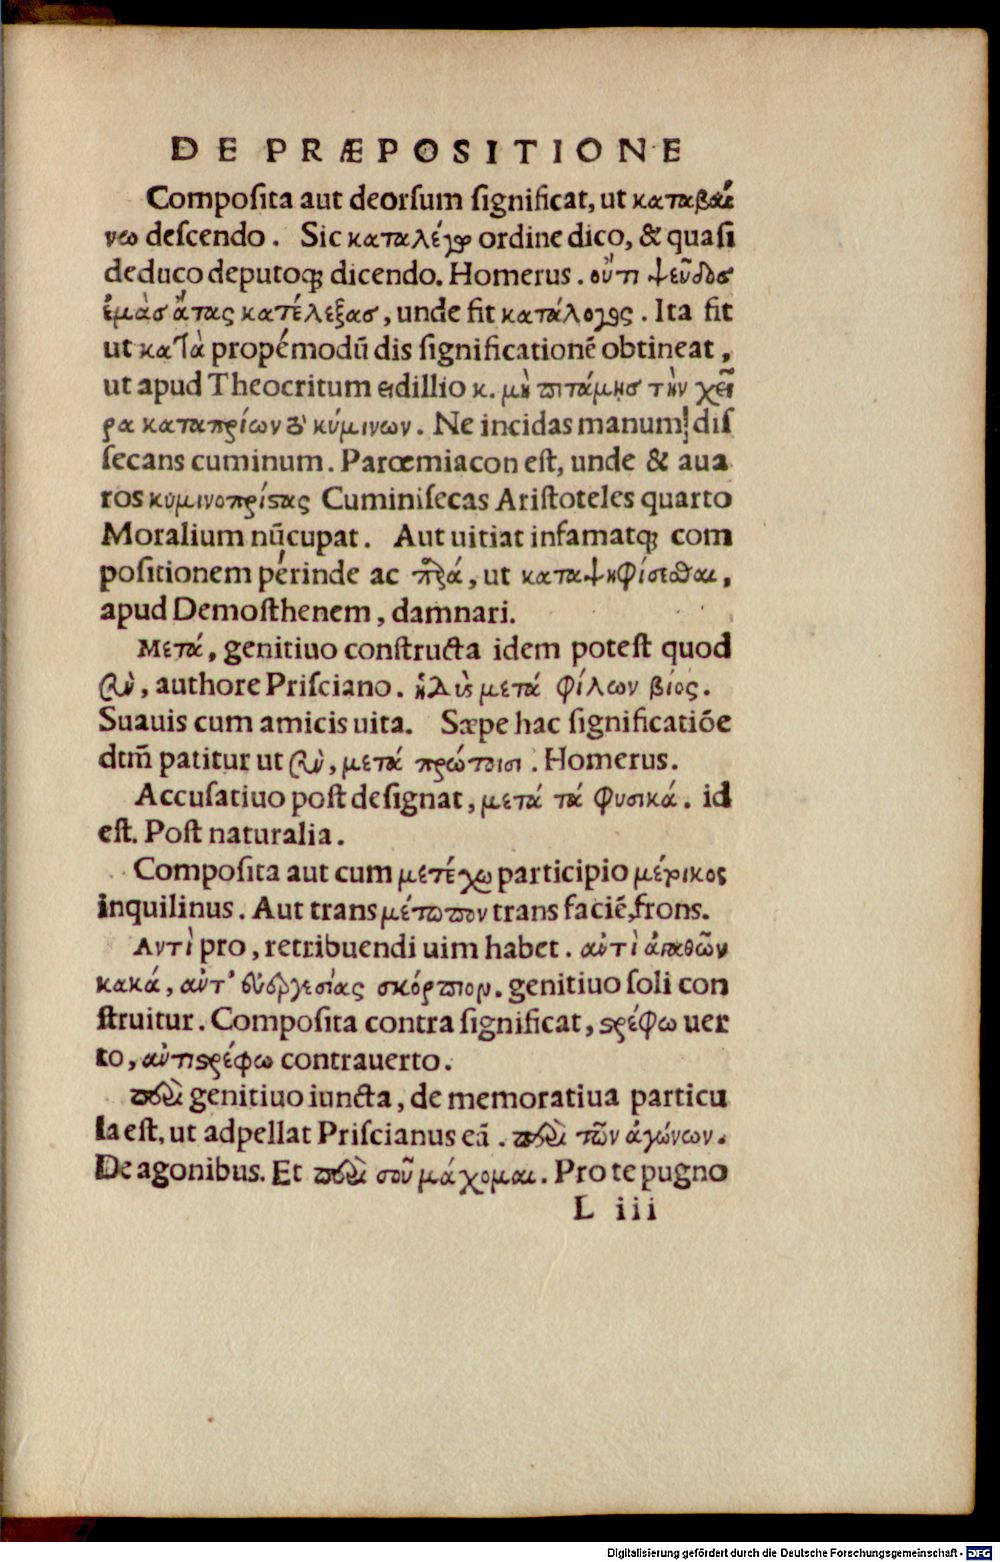 DE PRÆPOSITIONE
Composita aut deorsum significat, ut καταβαί
νω descendo. Sic καταλέγω ordine dico, & quasi
deduco deputoq; dicendo. Homerus. οὔτι ψεῦδος
ἐμὰσ ἄτας κατέλεξας, unde fit κατάλογος. Ita fit
ut κατὰ propémodū dis significationē obtineat,
ut apud Theocritum eidillio κ. μὴ πιτάμῃσ τὴν χεῖ
ρα καταπρίων τὸ κύμινων. Ne incidas manum dis
secans cuminum. Parœmiacon est, unde & aua
ros κυμινοπρίστας Cuminisecas Aristoteles quarto
Moralium nūcupat. Aut uitiat infamatq; com
positionem périnde ac παρά, ut καταψηφίσεσθαι,
apud Demosthenem, damnari.
Μετά, genitiuo constructa idem potest quod
σὺν, authore Prisciano. ἡδὺς μετά φίλων βίος.
Suauis cum amicis uita. Sæpe hac significatiōe
dtm̄ patitur ut σὺν, μετά πρώτοισι. Homerus.
Accusatiuo post designat, μετά τά φυσικά. id
est. Post naturalia.
Composita aut cum μετέχω participio μέτοικος
inquilinus. Aut trans μέτωπον trans faciē, frons.
Αντὶ pro, retribuendi uim habet. αὐτὶ ἀγαθῶν
κακά, αὐτ' εὐεργεσίας σκόρπιον. genitiuo soli con
struitur. Composita contra significat, στρέφω uer
to, αὐτιστρέφω contrauerto.
περὶ genitiuo iuncta, de memoratiua particu
la est, ut adpellat Priscianus eā. περὶ τῶν ἀγώνων.
De agonibus. Et περὶ σοῦ μάχομαι. Pro te pugno
L iii
Digitalisierung gefördert durch die Deutsche Forschungsgemeinschaft - DFG